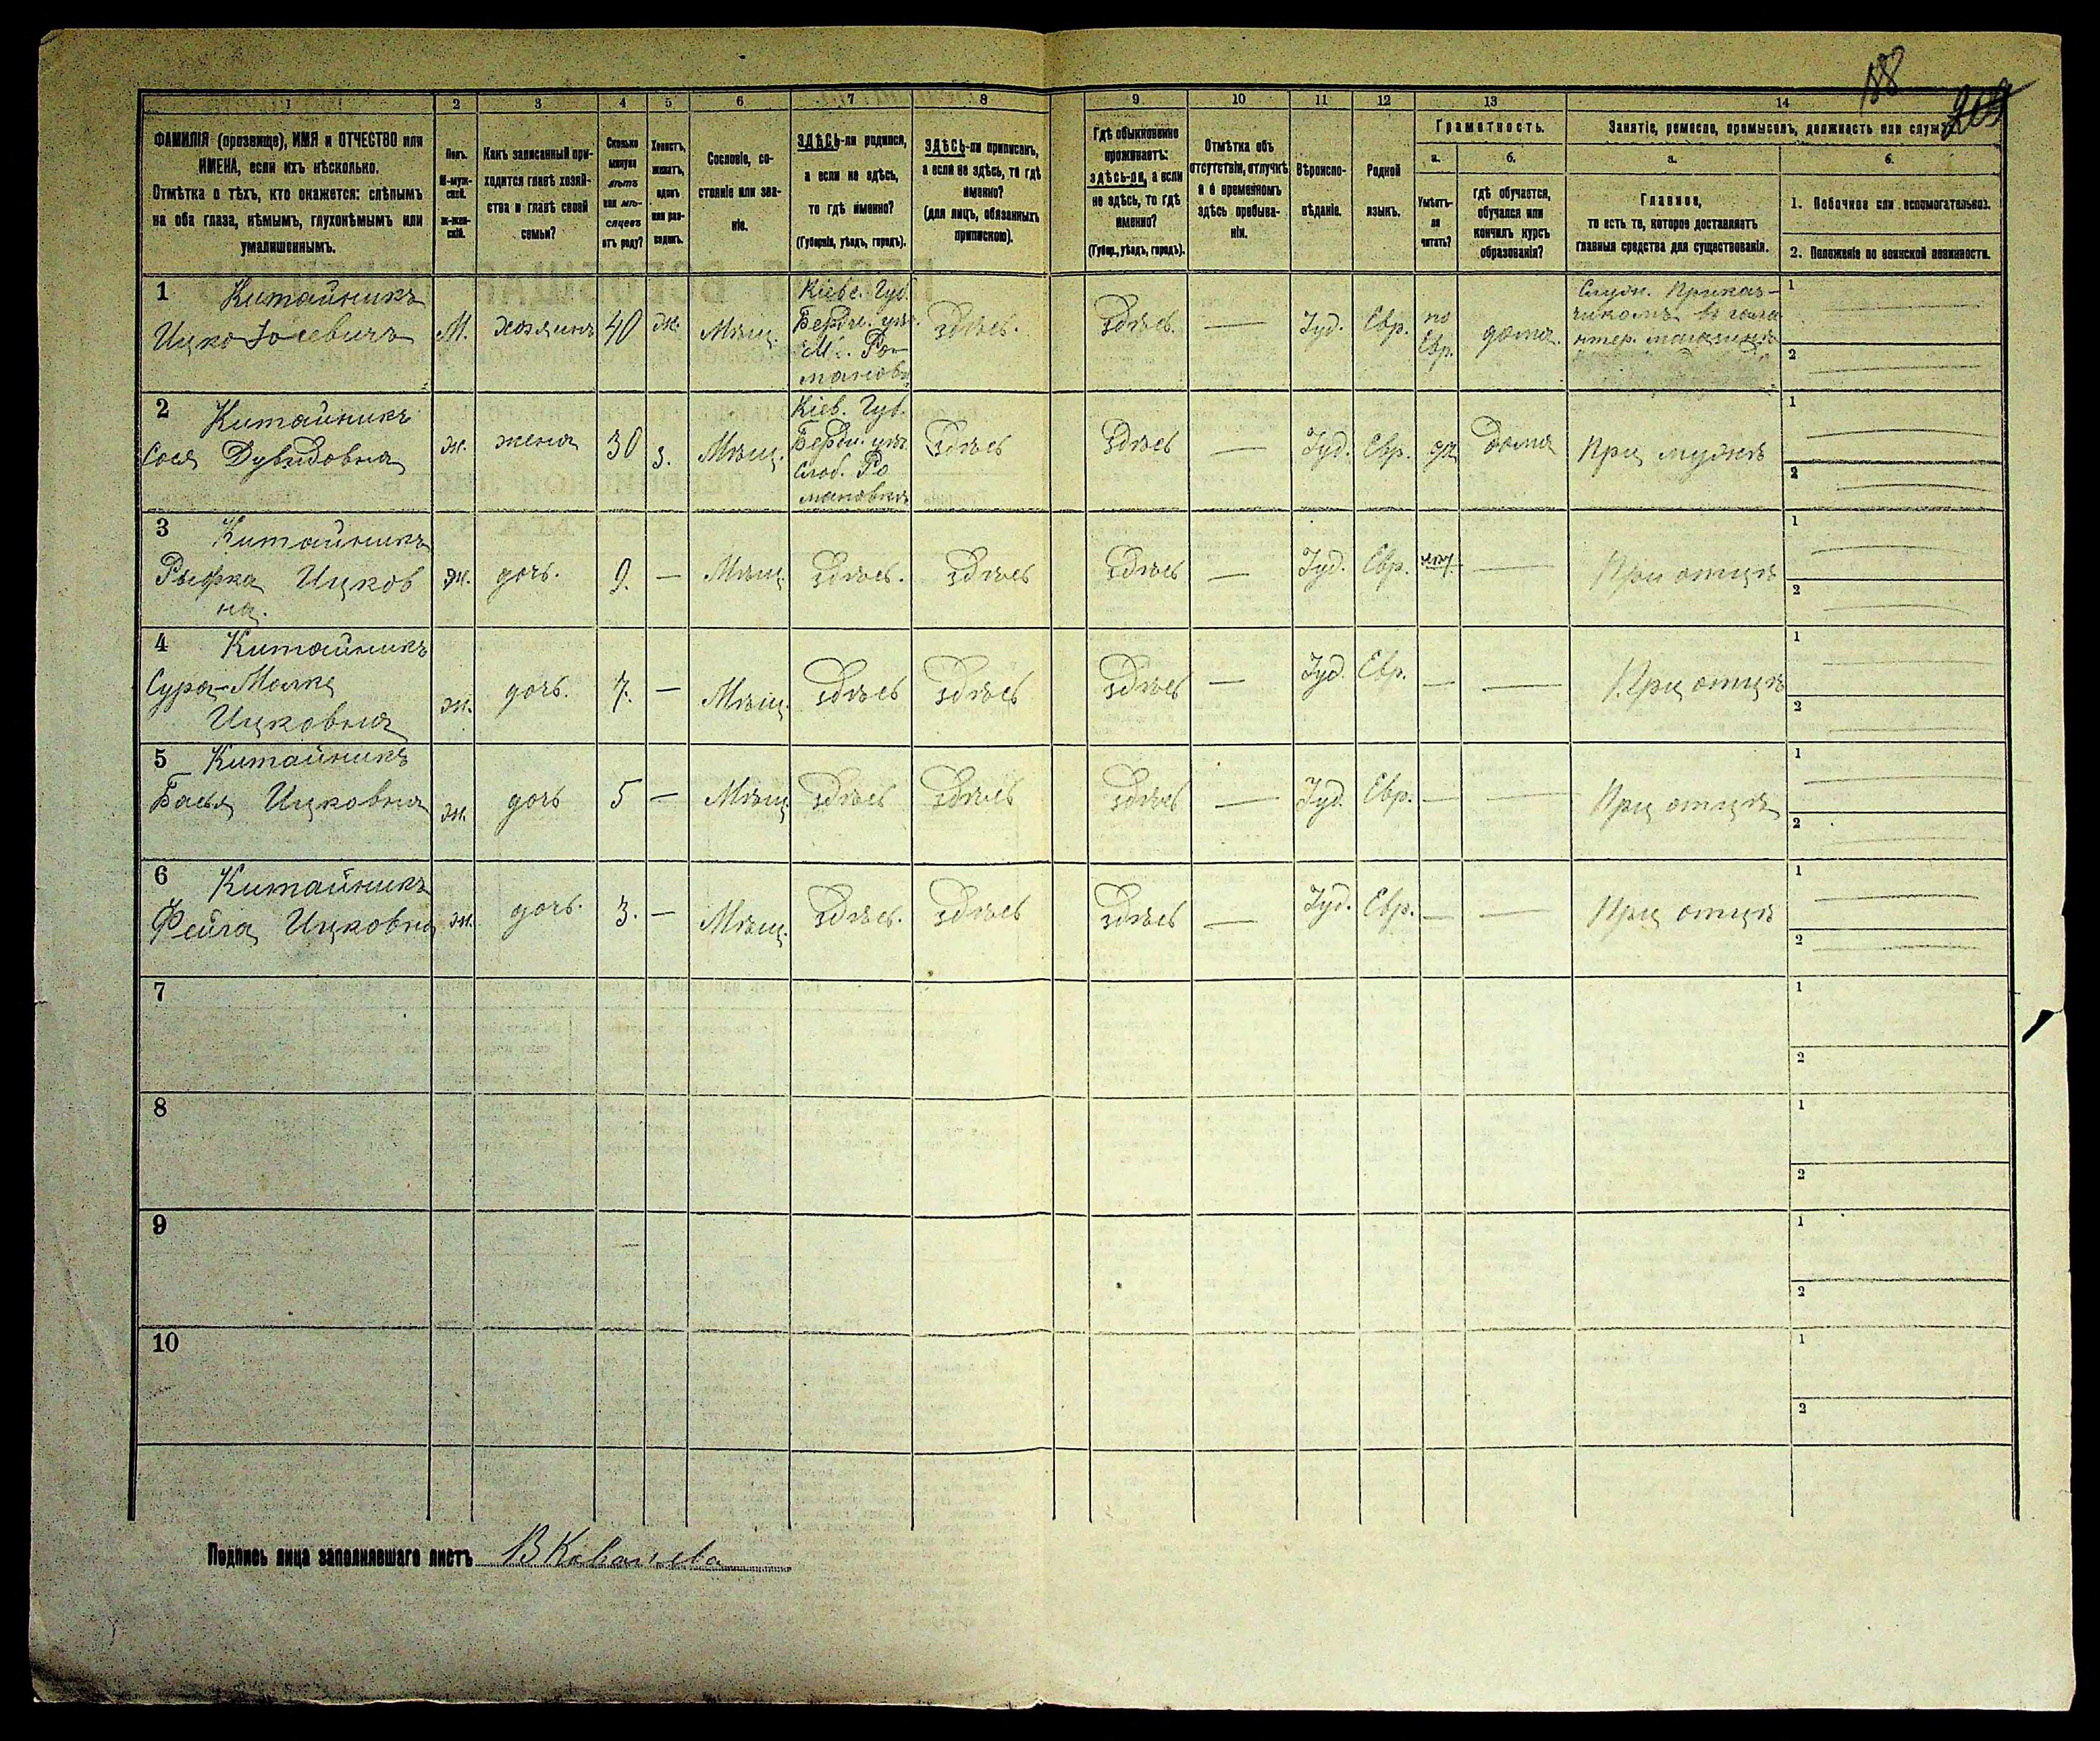 188
1
2
3
4
5
6
7
8
9
10
11
12
13
14
ФАМИЛІЯ (прозвище), ИМЯ и ОТЧЕСТВО или
ИМЕНА, если ихъ нѣсколько.
Отмѣтка о тѣхъ, кто окажется: слѣпымъ
на оба глаза, нѣмымъ, глухонѣмымъ или
умалишеннымъ.
Полъ.
М-муж-
ской.
ж-жен-
скій.
Какъ записанный при-
ходится главѣ хозяй-
ства и главѣ своей
семьи?
Сколько
минуло
лѣтъ
или мѣ-
сяцевъ
отъ роду?
Холостъ,
женатъ,
вдовъ
или раз-
веденъ.
Сословіе, со-
стояніе или зва-
ніе.
ЗДѢСЬ-ли родился,
а если не здѣсь,
то гдѣ именно?
(Губернія, уѣздъ, городъ).
ЗДѢСЬ-ли приписанъ,
а если не здѣсь, то гдѣ
именно?
(для лицъ, обязанныхъ
припискою).
Гдѣ обыкновенно
проживаетъ:
здѣсь-ли, а если
не здѣсь, то гдѣ
именно?
(Губер., уѣздъ, городъ).
Отмѣтка объ
отсутствіи, отлучкѣ
и о временномъ
здѣсь пребыва-
ніи.
Вѣроиспо-
вѣданіе.
Родной
языкъ.
Грамотность.
а.
Умѣетъ-
ли
читать?
б.
гдѣ обучается,
обучался или
кончилъ курсъ
образованія?
Занятіе, ремесло, промыселъ, должность или служ
а.
Главное,
то есть то, которое доставляетъ
главныя средства для существованія.
б.
1. Побочное или вспомогательное.
2. Положеніе по воинской повинности.
1 Китайникъ
Ицко Іосевичъ
М.
хозяинъ
40
ж.
Мѣщ.
Кіевс. Губ.
Бердич. уѣз.
М. Ро-
мановк
здѣсь.
здѣсь.
—
Іуд.
Евр.
по
Евр.
дома.
Служ. Приказ-
чикомъ въ гала
нтер. магазинѣ
1
2
2 Китайникъ
Сося Дувидовна
ж.
жена
30
з.
Мѣщ.
Кіев. Губ.
Бердич. уѣз.
Слоб. Ро
мановка
здѣсь
здѣсь
—
Іуд.
Евр.
да
дома
При мужѣ
1
2
3 Китайникъ
Рыфка Ицков
на.
ж.
дочь.
9.
—
Мѣщ.
здѣсь.
здѣсь
здѣсь
—
Іуд.
Евр.
нѣт
—
При отцѣ
1
2
4 Китайникъ
Сура-Малка
Ицковна
ж.
дочь.
7.
—
Мѣщ.
здѣсь
здѣсь
здѣсь
—
Іуд.
Евр.
—
—
При отцѣ
1
2
5 Китайникъ
Бася Ицковна
ж.
дочь
5
—
Мѣщ.
здѣсь
здѣсь
здѣсь
—
Іуд.
Евр.
—
—
При отцѣ
1
2
6 Китайникъ
Фейга Ицковна
ж.
дочь.
3.
—
Мѣщ.
здѣсь.
здѣсь
здѣсь
—
Іуд.
Евр.
—
—
При отцѣ
1
2
7
1
2
8
1
2
9
1
2
10
1
2
Подпись лица заполнявшаго листъ